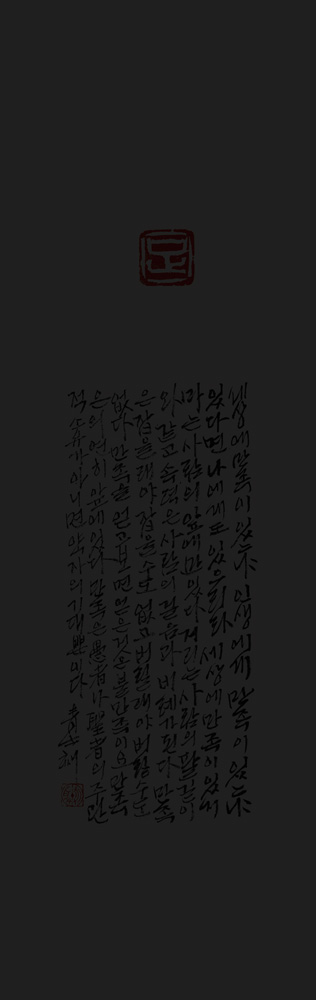 足
생에 만족이 있는가 인생에게 만족이 있는가
있다면 나에게도 있으리라 세상에 만족이 있지
마는 사람의 앞에만 있다 거리는 사람의 팔길이
와 같고 속력은 사람의 걸음과 비례가 된다 만족
은 잡을래야 잡을 수도 없고 버릴래야 버릴 수도
없다 만족을 얻고 보면 얻은 것은 불만족이요 만족
은 의연히 앞에 있다 만족은 愚者나 聖者의 주관
적 소유가 아니면 약자의 기대뿐이다